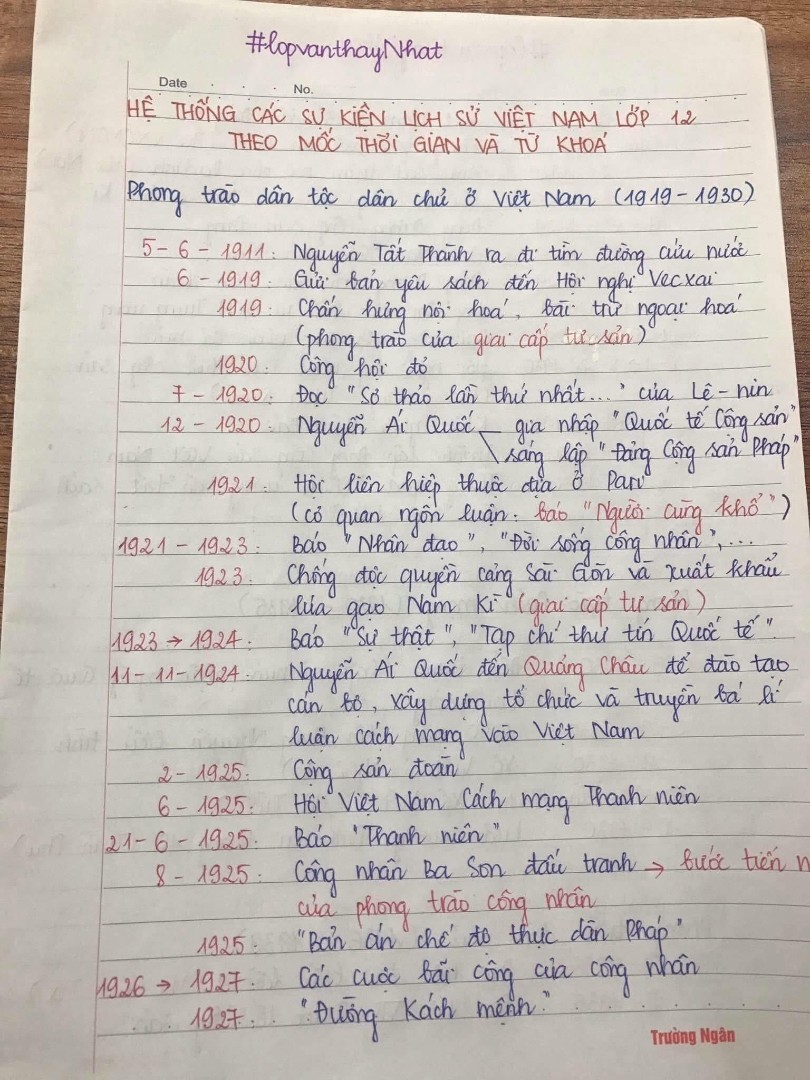 #lopvanthayNhat
Date . . . No.
HỆ THỐNG CÁC SỰ KIỆN LỊCH SỬ VIỆT NAM LỚP 12
THEO MỐC THỜI GIAN VÀ TỪ KHOÁ
Phong trào dân tộc dân chủ ở Việt Nam (1919 - 1930)
5 - 6 - 1911: Nguyễn Tất Thành ra đi tìm đường cứu nước
6 - 1919: Gửi bản yêu sách đến Hội nghị Vecxai
1919: Chấn hưng nội hoá, bài trừ ngoại hoá
(phong trào của giai cấp tư sản)
1920: Công hội đỏ
7 - 1920: Đọc "Sơ thảo lần thứ nhất..." của Lê-nin
12 - 1920: Nguyễn Ái Quốc gia nhập "Quốc tế Cộng sản"
sáng lập "Đảng Cộng sản Pháp"
1921: Hội liên hiệp thuộc địa ở Pari
(cơ quan ngôn luận: báo "Người cùng khổ")
1921 - 1923: Báo "Nhân đạo", "Đời sống công nhân",...
1923: Chống độc quyền cảng Sài Gòn và xuất khẩu
lúa gạo Nam Kì (giai cấp tư sản)
1923 → 1924: Báo "Sự thật", "Tạp chí thư tín Quốc tế".
11 - 11 - 1924: Nguyễn Ái Quốc đến Quảng Châu để đào tạo
cán bộ, xây dựng tổ chức và truyền bá lí
luận cách mạng vào Việt Nam
2 - 1925: Cộng sản đoàn
6 - 1925: Hội Việt Nam Cách mạng Thanh niên
21 - 6 - 1925: Báo "Thanh niên"
8 - 1925: Công nhân Ba Son đấu tranh → bước tiến
của phong trào công nhân
1925: "Bản án chế độ thực dân Pháp"
1926 → 1927: Các cuộc bãi công của công nhân
1927: "Đường Kách mệnh"
Trường Ngân